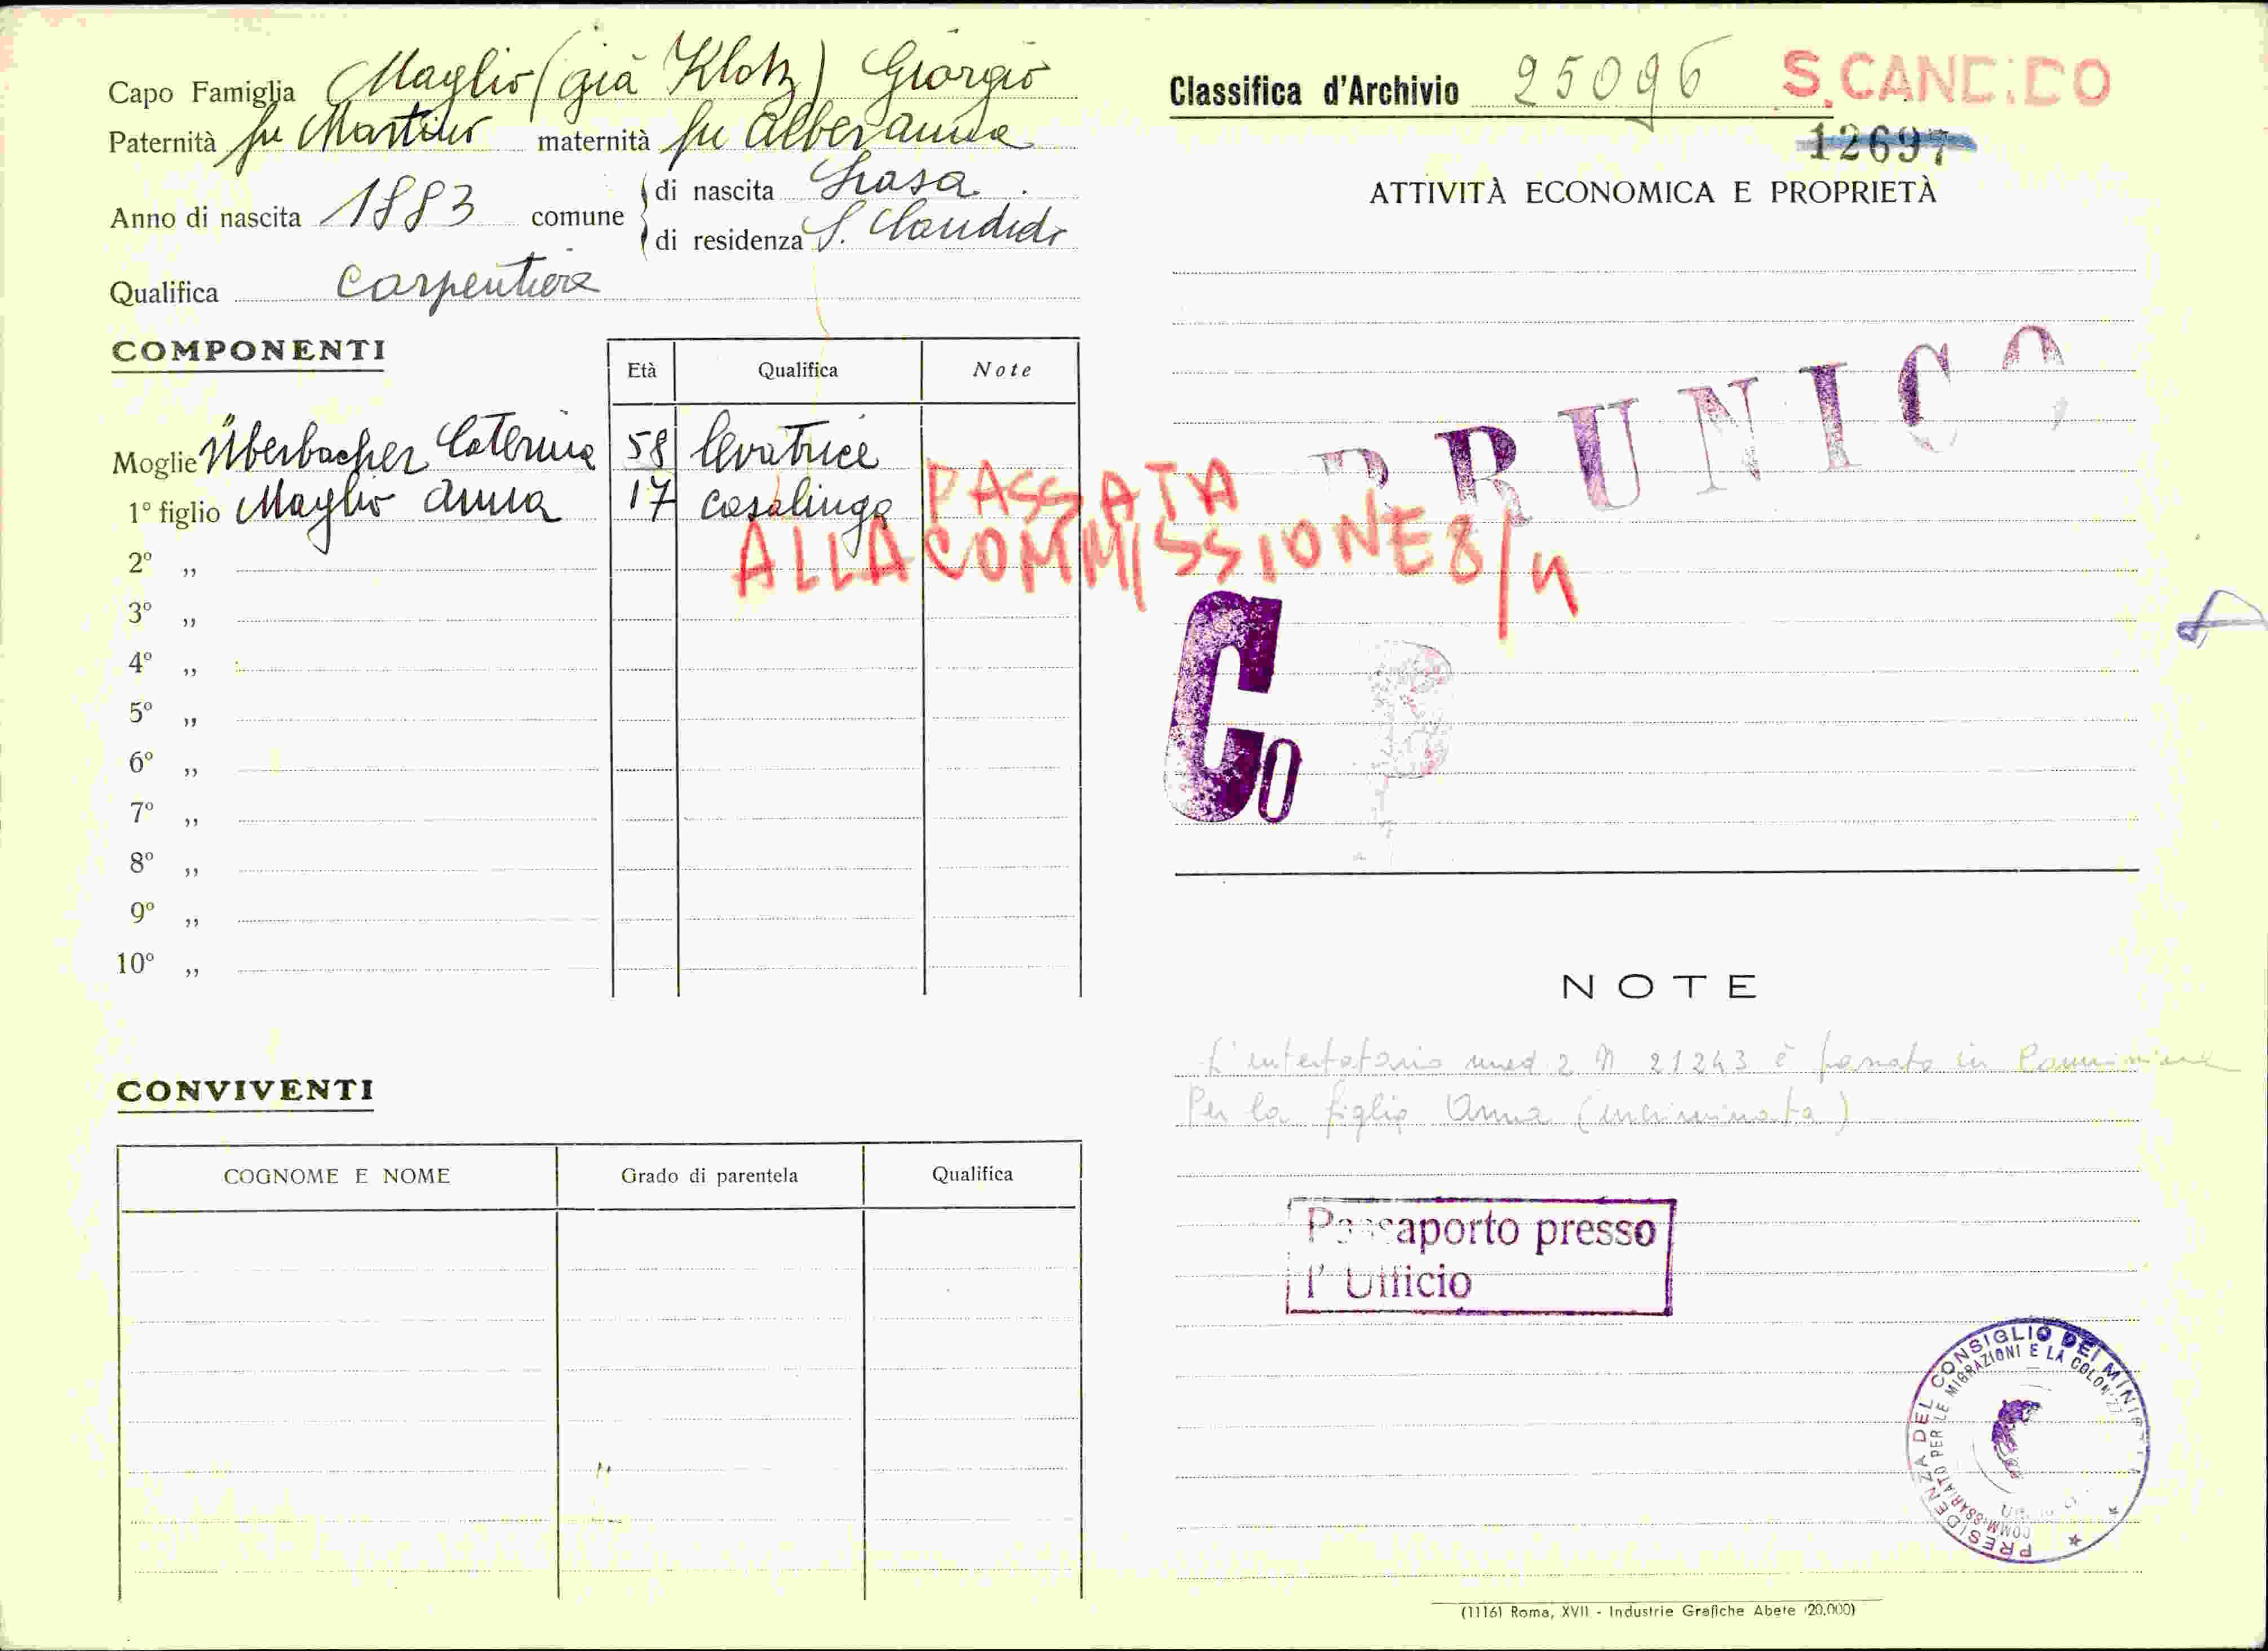 Capo Famiglia Maglio (già Klotz) Giorgio
Paternità fu Martino maternità fu Alber Anna
Anno di nascita 1883 comune di nascita Lasa
di residenza S. Candido
Qualifica Carpentiere
COMPONENTI
Età Qualifica Note
Moglie Überbacher Caterina 58 levatrice
1º figlio Maglio Anna 17 casalinga
2º „
3º „
4º „
5º „
6º „
7º „
8º „
9º „
10º „
PASSATA
ALLA COMMISSIONE 8/4
CONVIVENTI
COGNOME E NOME Grado di parentela Qualifica
Classifica d'Archivio 25096 S. CANDIDO
12697
ATTIVITÀ ECONOMICA E PROPRIETÀ
BRUNICO
Co
NOTE
L'intestatario mod 2 N 21243 è passato in Commissione
Per la figlia Anna (incriminata)
Passaporto presso
l' Ufficio
PRESIDENZA DEL CONSIGLIO DEI MINISTRI
COMMISSARIATO PER LE MIGRAZIONI E LA COLONIZZ
(1116) Roma, XVII - Industrie Grafiche Abete (20.000)